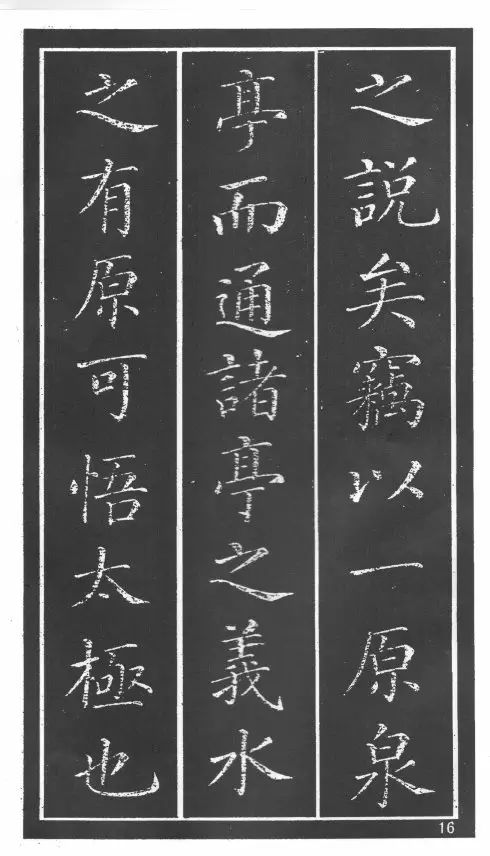 之說矣竊以一原泉
亭而通諸亭之義水
之有原可悟太極也
16